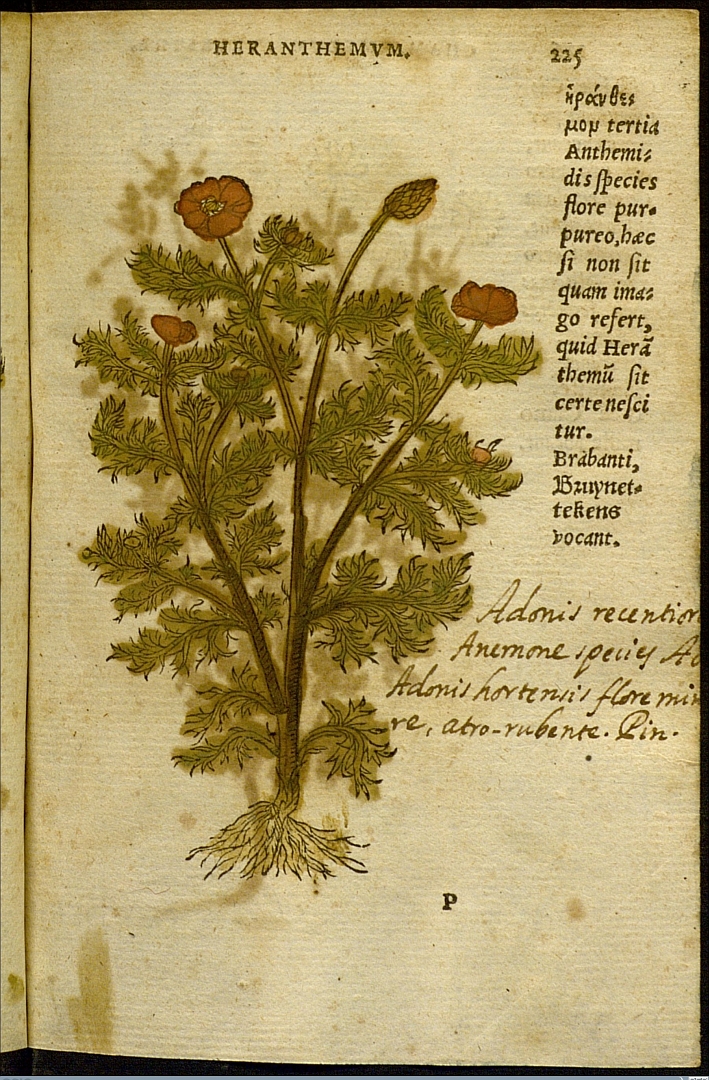 HERANTHEMVM.
225
ἠράνθε⸗
μομ tertia
Anthemi⸗
dis ſpecies
flore pur⸗
pureo, hæc
ſi non ſit
quam ima⸗
go refert,
quid Herā
themū ſit
certe neſci
tur.
Brabanti,
Bruynet⸗
tekens
vocant.
Adonis recention
Anemone species Ad
Adonis hortensis flore min
re, atro-rubente. Pin.
P